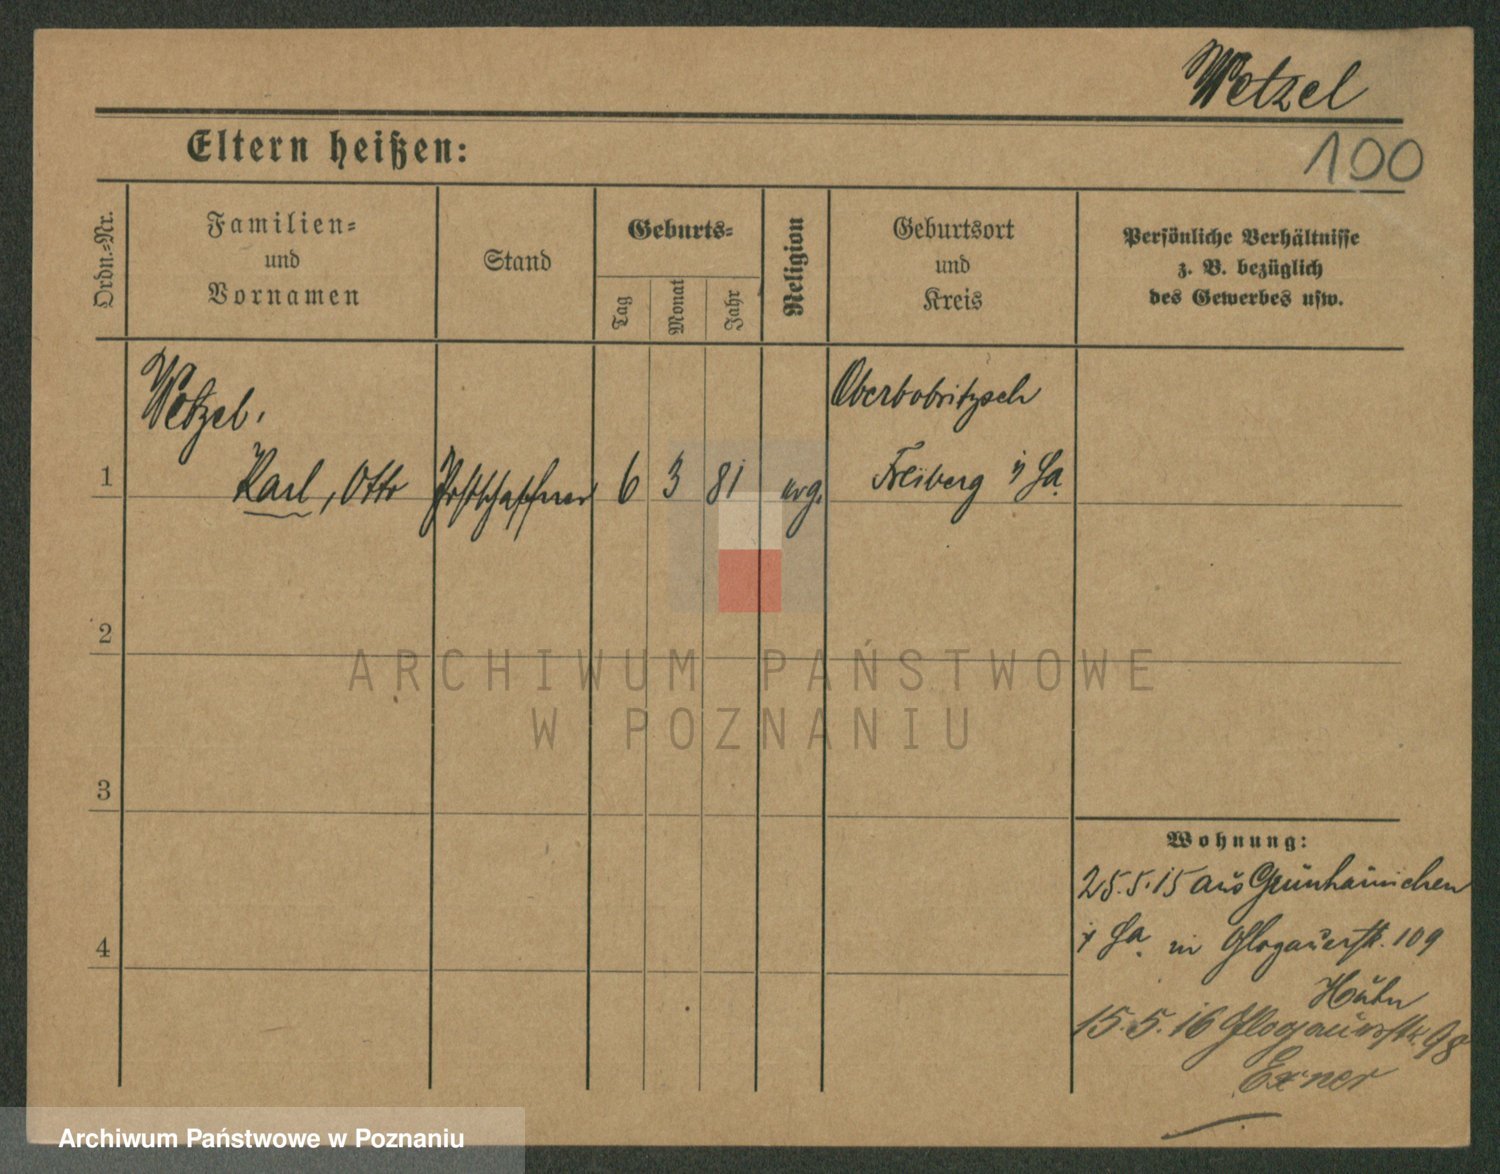 Wetzel
100
Eltern heißen:
Ordn.-Nr.
Familien-
und
Vornamen
Stand
Geburts-
Tag
Monat
Jahr
Religion
Geburtsort
und
Kreis
Persönliche Verhältnisse
z. B. bezüglich
des Gewerbes usw.
Wetzel,
Oberbobritzsch
1 Karl, Otto Postschaffner 6 3 81 evg. Freiberg i/ Sa.
2
ARCHIWUM PAŃSTWOWE
W POZNANIU
3
Wohnung:
25.5.15 aus Grünhainichen
4
i/ Sa. in Glogauerstr. 109
15.5.16 Glogauerstr. 98
Exner
Archiwum Państwowe w Poznaniu